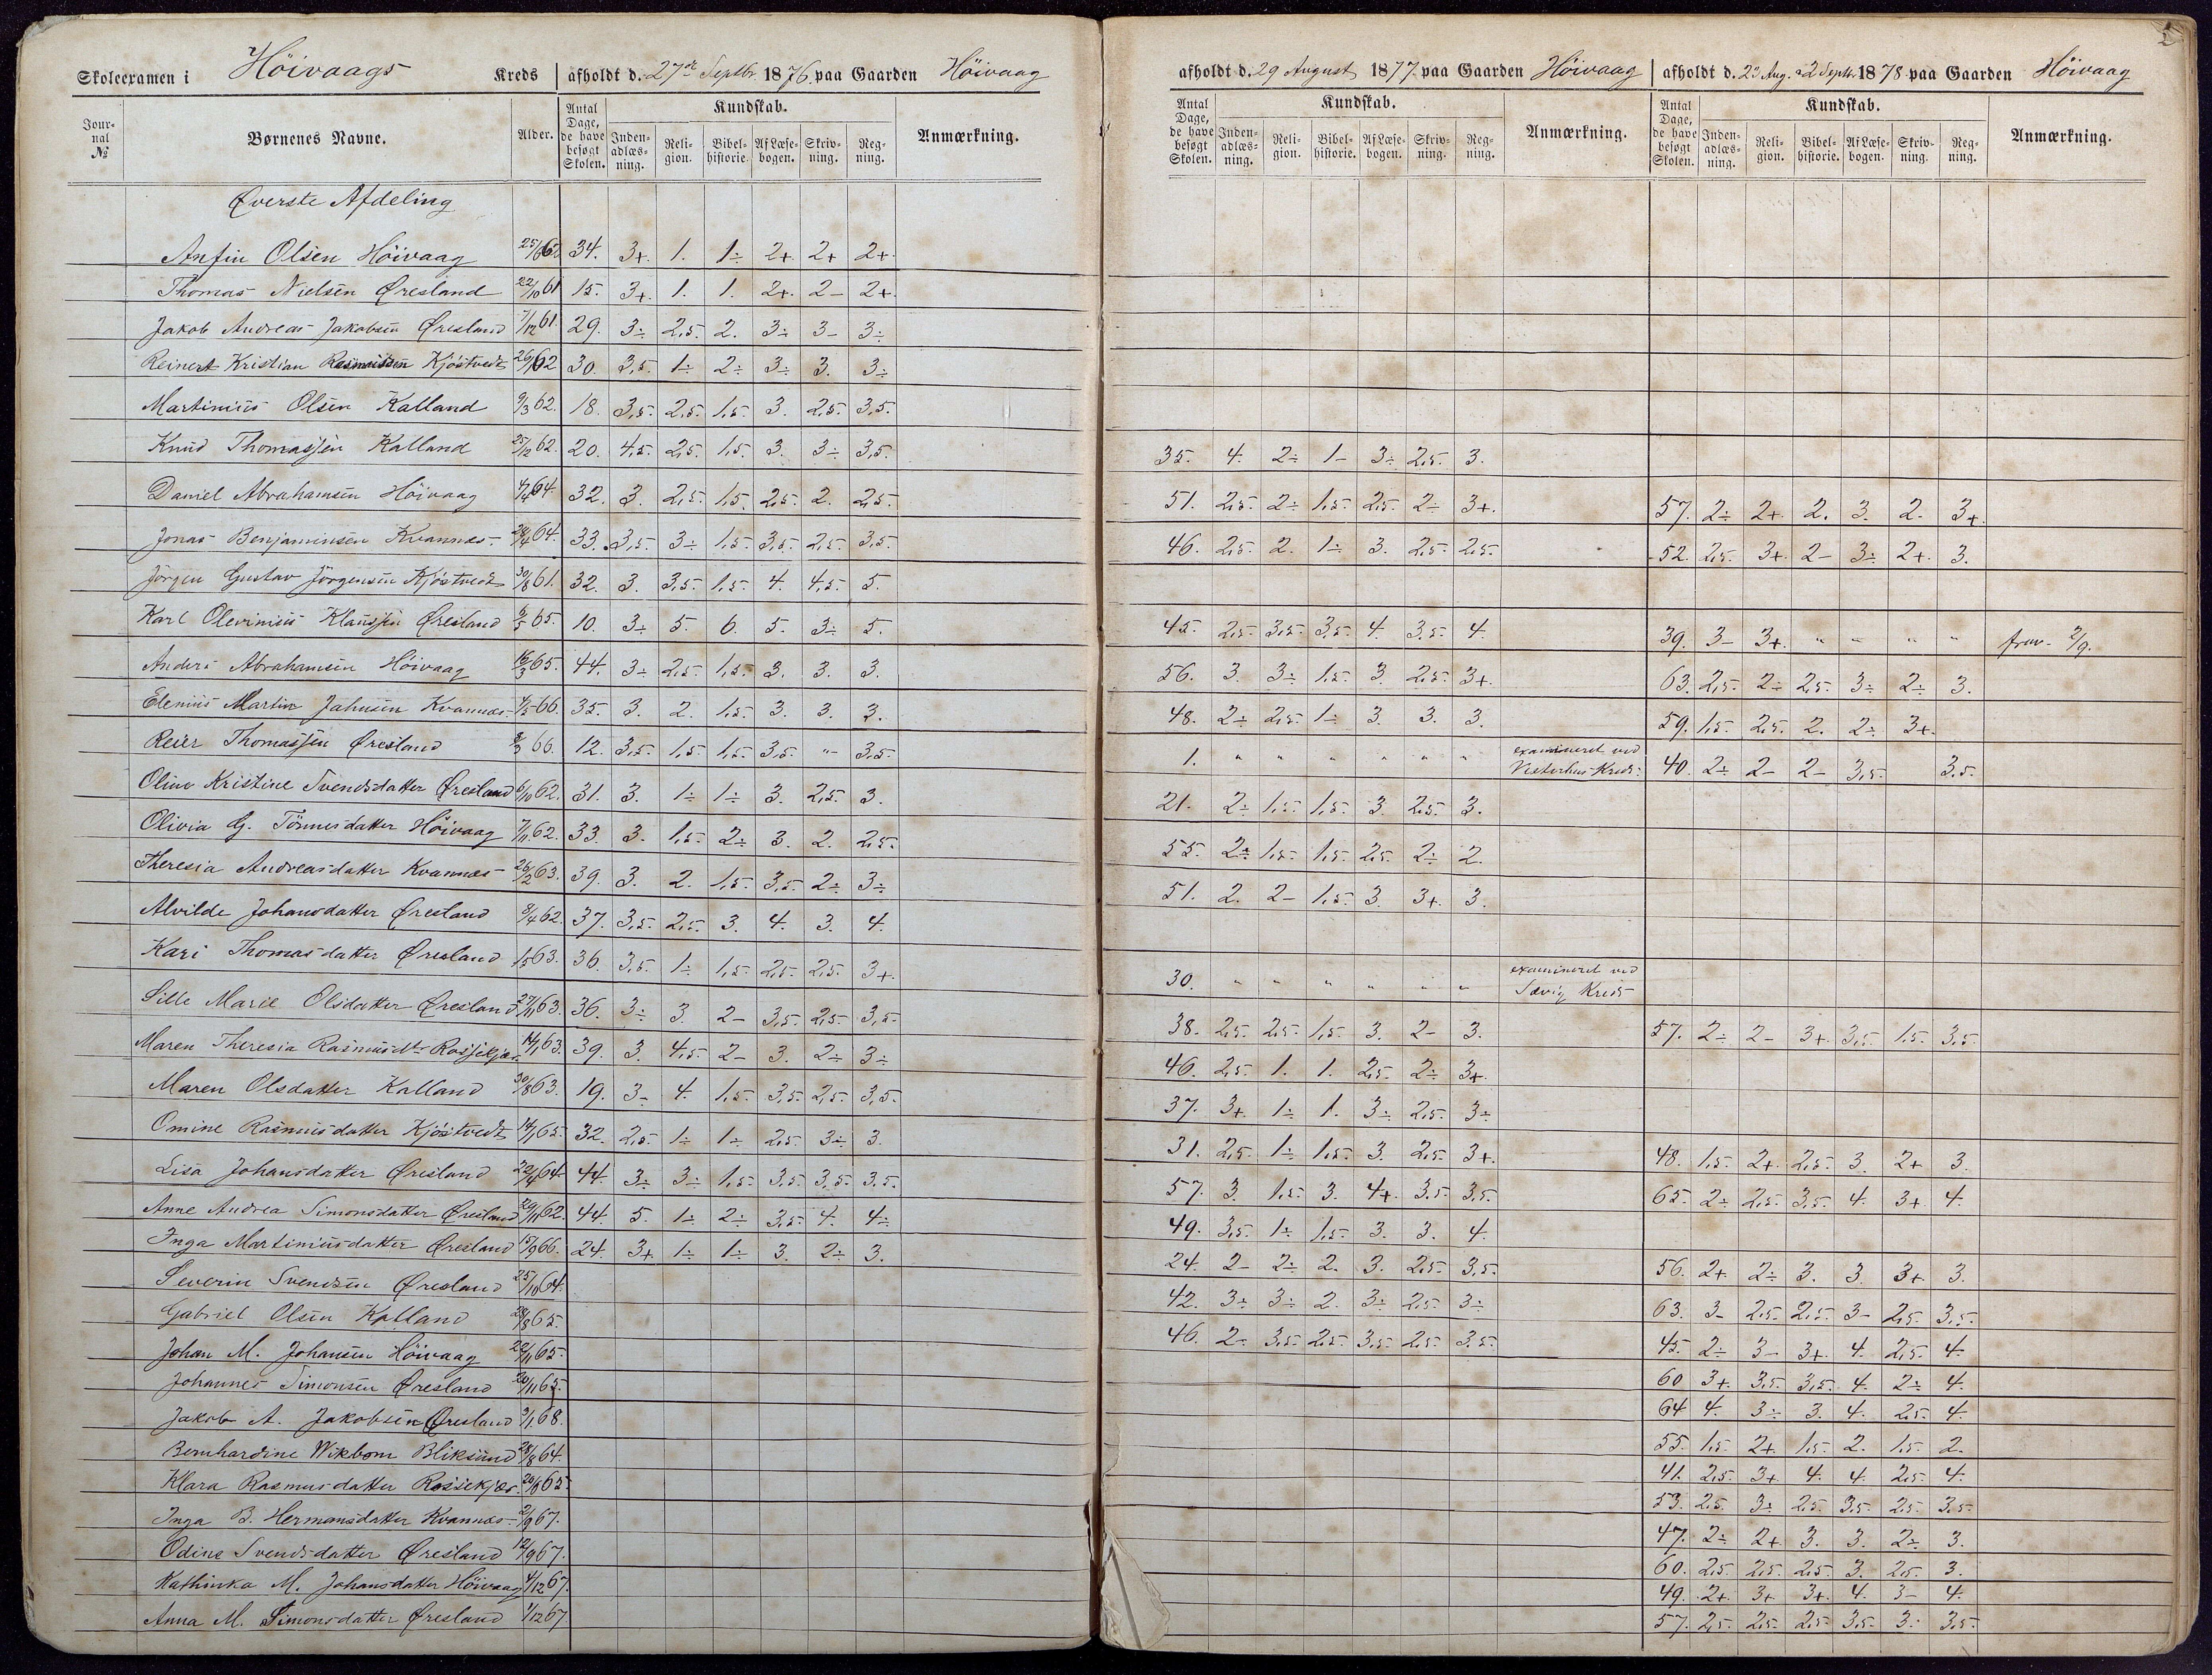 2
Skoleexamen i Höivaags Kreds afholdt d. 27de Septbr 1876 paa Gaarden Höivaag
afholdt d. 29 August 1877 paa Gaarden Höivaag
afholdt d. 23 Aug. 2 Septr. 1878 paa Gaarden Höivaag
Journal № Børnenes Navne. Alder. Antal Dage, de have besøgt Skolen. Kundskab. Indenadlæsning. Religion. Bibelhistorie. Af Læsebogen. Skrivning. Regning. Anmærkning.
Antal Dage, de have besøgt Skolen. Kundskab. Indenadlæsning. Religion. Bibelhistorie. Af Læsebogen. Skrivning. Regning. Anmærkning.
Antal Dage, de have besøgt Skolen. Kundskab. Indenadlæsning. Religion. Bibelhistorie. Af Læsebogen. Skrivning. Regning. Anmærkning.
Øverste Afdeling
Anfin Olsen Höivaag 34. 3+. 1. 1÷ 2+. 2+ 2+
Thomas Nielsen Øresland 22/10 61 15. 3+. 1. 1. 2+. 2- 2+.
Jakob Andreas Jakobsen Øresland 7/12 61. 29. 3÷ 2,5. 2. 3÷ 3- 3÷
Reinert Kristian Rasmussen Kjöstvedt 30. 3,5. 1÷ 2÷ 3÷ 3. 3÷
Martinius Olsen Kalland 9/3 62. 18. 3,5. 2,5. 1,5. 3. 2,5. 3,5.
Knud Thomassen Kalland 25/12 62. 20. 4,5. 2,5. 1,5. 3. 3÷ 3,5. 35. 4. 2÷ 1- 3÷ 2,5. 3.
Daniel Abrahamsen Höivaag 4/4 64. 32. 3. 2,5. 1,5. 2,5. 2. 2,5. 51. 2,5. 2÷ 1,5. 2,5. 2÷ 3+. 57. 2÷ 2+. 2. 3. 2. 3+
Jonas Benjaminsen Kvannes 33. 3,5. 3÷ 1,5. 3,5. 2,5. 3,5. 46. 2,5. 2. 1÷ 3. 2,5. 2,5. 52. 2,5. 3+. 2- 3÷ 2+. 3.
Jörgen Gustav Jörgensen Kjöstvedt 30/8 61. 32. 3. 3,5. 1,5. 4. 4,5. 5.
Karl Olevinius Klaussen Øresland 65. 10. 3÷ 5. 6. 5. 3÷ 5. 45. 2,5. 3,5. 3,5. 4. 3,5. 4. 39. 3- 3+. " " " " frav. 2/9.
Anders Abrahamsen Höivaag 65. 44. 3÷ 2,5. 1,5. 3. 3. 3. 56. 3. 3÷ 1,5. 3. 2,5. 3+. 63. 2,5. 2÷ 2,5. 3÷ 2÷ 3.
Elenius Martin Jahnsen Kvannes 66. 35. 3. 2. 1,5. 3. 3. 3. 48. 2÷ 2,5. 1÷ 3. 3. 3. 59. 1,5. 2,5. 2. 2÷ 3+.
Reier Thomassen Øresland 66. 12. 3,5. 1,5. 1,5. 3,5. " 3,5. 1. " " " " " " examineret ved Vesterhus Kreds. 40. 2÷ 2- 2- 3,5. 3,5.
Oline Kristine Svendsdatter Øresland 6/10 62. 31. 3. 1÷ 1÷ 3. 2,5. 3. 21. 2÷ 1,5. 1,5. 3. 2,5. 3.
Olivia G. Tönnesdatter Höivaag 7/11 62. 33. 3. 1,5. 2÷ 3. 2. 2,5. 55. 2÷ 1,5. 1,5. 2,5. 2÷ 2.
Theresia Andreasdatter Kvannes 26/2 63. 39. 3. 2. 1,5. 3,5. 2÷ 3÷ 51. 2. 2- 1,5. 3. 3+. 3.
Alvilde Johansdatter Øresland 8/4 62. 37. 3,5. 2,5. 3. 4. 3. 4.
Kari Thomasdatter Øresland 63. 36. 3,5. 1÷ 1,5. 2,5. 2,5. 3+. 30. " " " " " " examineret ved Sævig Kreds
Sille Marie Olsdatter Øresland 27/11 63. 36. 3÷ 3. 2- 3,5. 2,5. 3,5. 38. 2,5. 2,5. 1,5. 3. 2- 3. 57. 2÷ 2- 3+. 3,5. 1,5. 3,5.
Maren Theresia Rasmusdt. Rossekjær 63. 39. 3. 4,5. 2- 3. 2÷ 3÷ 46. 2,5. 1. 1. 2,5. 2÷ 3+.
Maren Olsdatter Kalland 30/8 63. 19. 3- 4. 1,5. 3,5. 2,5. 3,5. 37. 3+. 1÷ 1. 3÷ 2,5. 3÷
Omine Rasmusdatter Kjöstvedt 14/1 65. 32. 2,5. 1÷ 1÷ 2,5. 3÷ 3. 31. 2,5. 1÷ 1,5. 3. 2,5. 3+. 48. 1,5. 2+. 2,5. 3. 2+ 3.
Lisa Johansdatter Øresland 64. 44. 3÷ 3÷ 1,5. 3,5. 3,5. 3,5. 57. 3. 1,5. 3. 4+. 3,5. 3,5. 65. 2÷ 2,5. 3,5. 4. 3+ 4.
Anne Andrea Simonsdatter Øresland 29/11 62. 44. 5. 1÷ 2÷ 3,5. 4. 4÷ 49. 3,5. 1÷ 1,5. 3. 3. 4.
Inga Martiniusdatter Øresland 15/9 66. 24. 3+. 1÷ 1÷ 3. 2÷ 3. 24. 2- 2÷ 2. 3. 2,5. 3,5. 56. 2+. 2÷ 3. 3. 3+ 3.
Severin Svendsen Øresland 25/10 64. 42. 3÷ 3÷ 2. 3÷ 2,5. 3÷ 63. 3- 2,5. 2,5. 3- 2,5. 3,5.
Gabriel Olsen Kalland 28/8 65. 46. 2- 3,5. 2,5. 3,5. 2,5. 3,5. 45. 2÷ 3- 3+. 4. 2,5. 4.
Johan M. Johansen Höivaag 22/11 65. 60. 3+. 3,5. 3,5. 4. 2÷ 4.
Johannes Simonsen Øresland 64. 4. 3÷ 3. 4. 2,5. 4.
Jakob A. Jakobsen Øresland 3/1 68. 55. 1,5. 2+. 1,5. 2. 1,5. 2.
Bernhardine Wikbom Bliksund 28/8 64. 41. 2,5. 3+ 4. 4. 2,5. 4.
Klara Rasmusdatter Rossekjær 65. 53. 2,5. 3÷ 2,5. 3,5. 2,5. 3,5.
Inga B. Hermansdatter Kvannes 2/9 67. 47. 2÷ 2+ 3. 3. 2÷ 3.
Odine Svendsdatter Øresland 12/9 67. 60. 2,5. 2,5. 2,5. 3. 2,5. 3.
Kathinka M. Johansdatter Höivaag 4/12 67. 49. 2+. 3+ 3+. 4. 3- 4.
Anna M. Simonsdatter Øresland 1/12 67. 57. 2,5. 2,5. 2,5. 3,5. 3. 3,5.